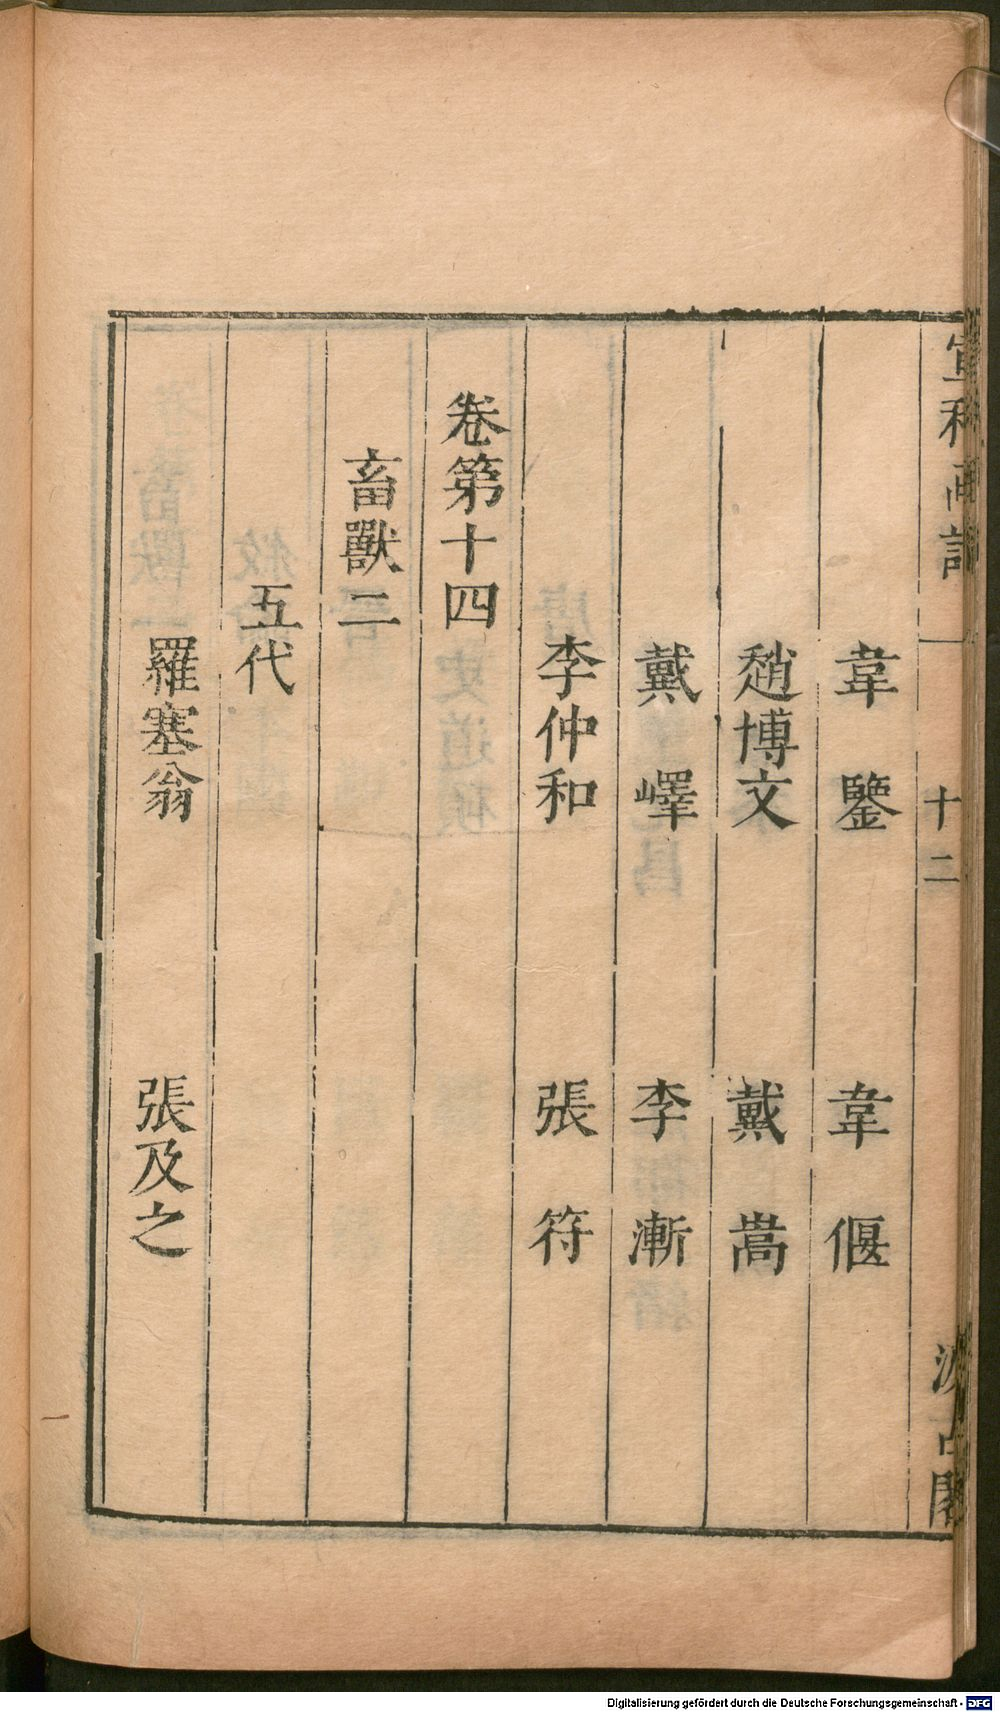 宣和画譜
十二
汲古閣
韋鑒 韋偃
趙博文 戴嵩
戴嶧 李漸
李仲和 張符
卷第十四
畜獸二
五代
羅塞翁 張及之
Digitalisierung gefördert durch die Deutsche Forschungsgemeinschaft - DFG